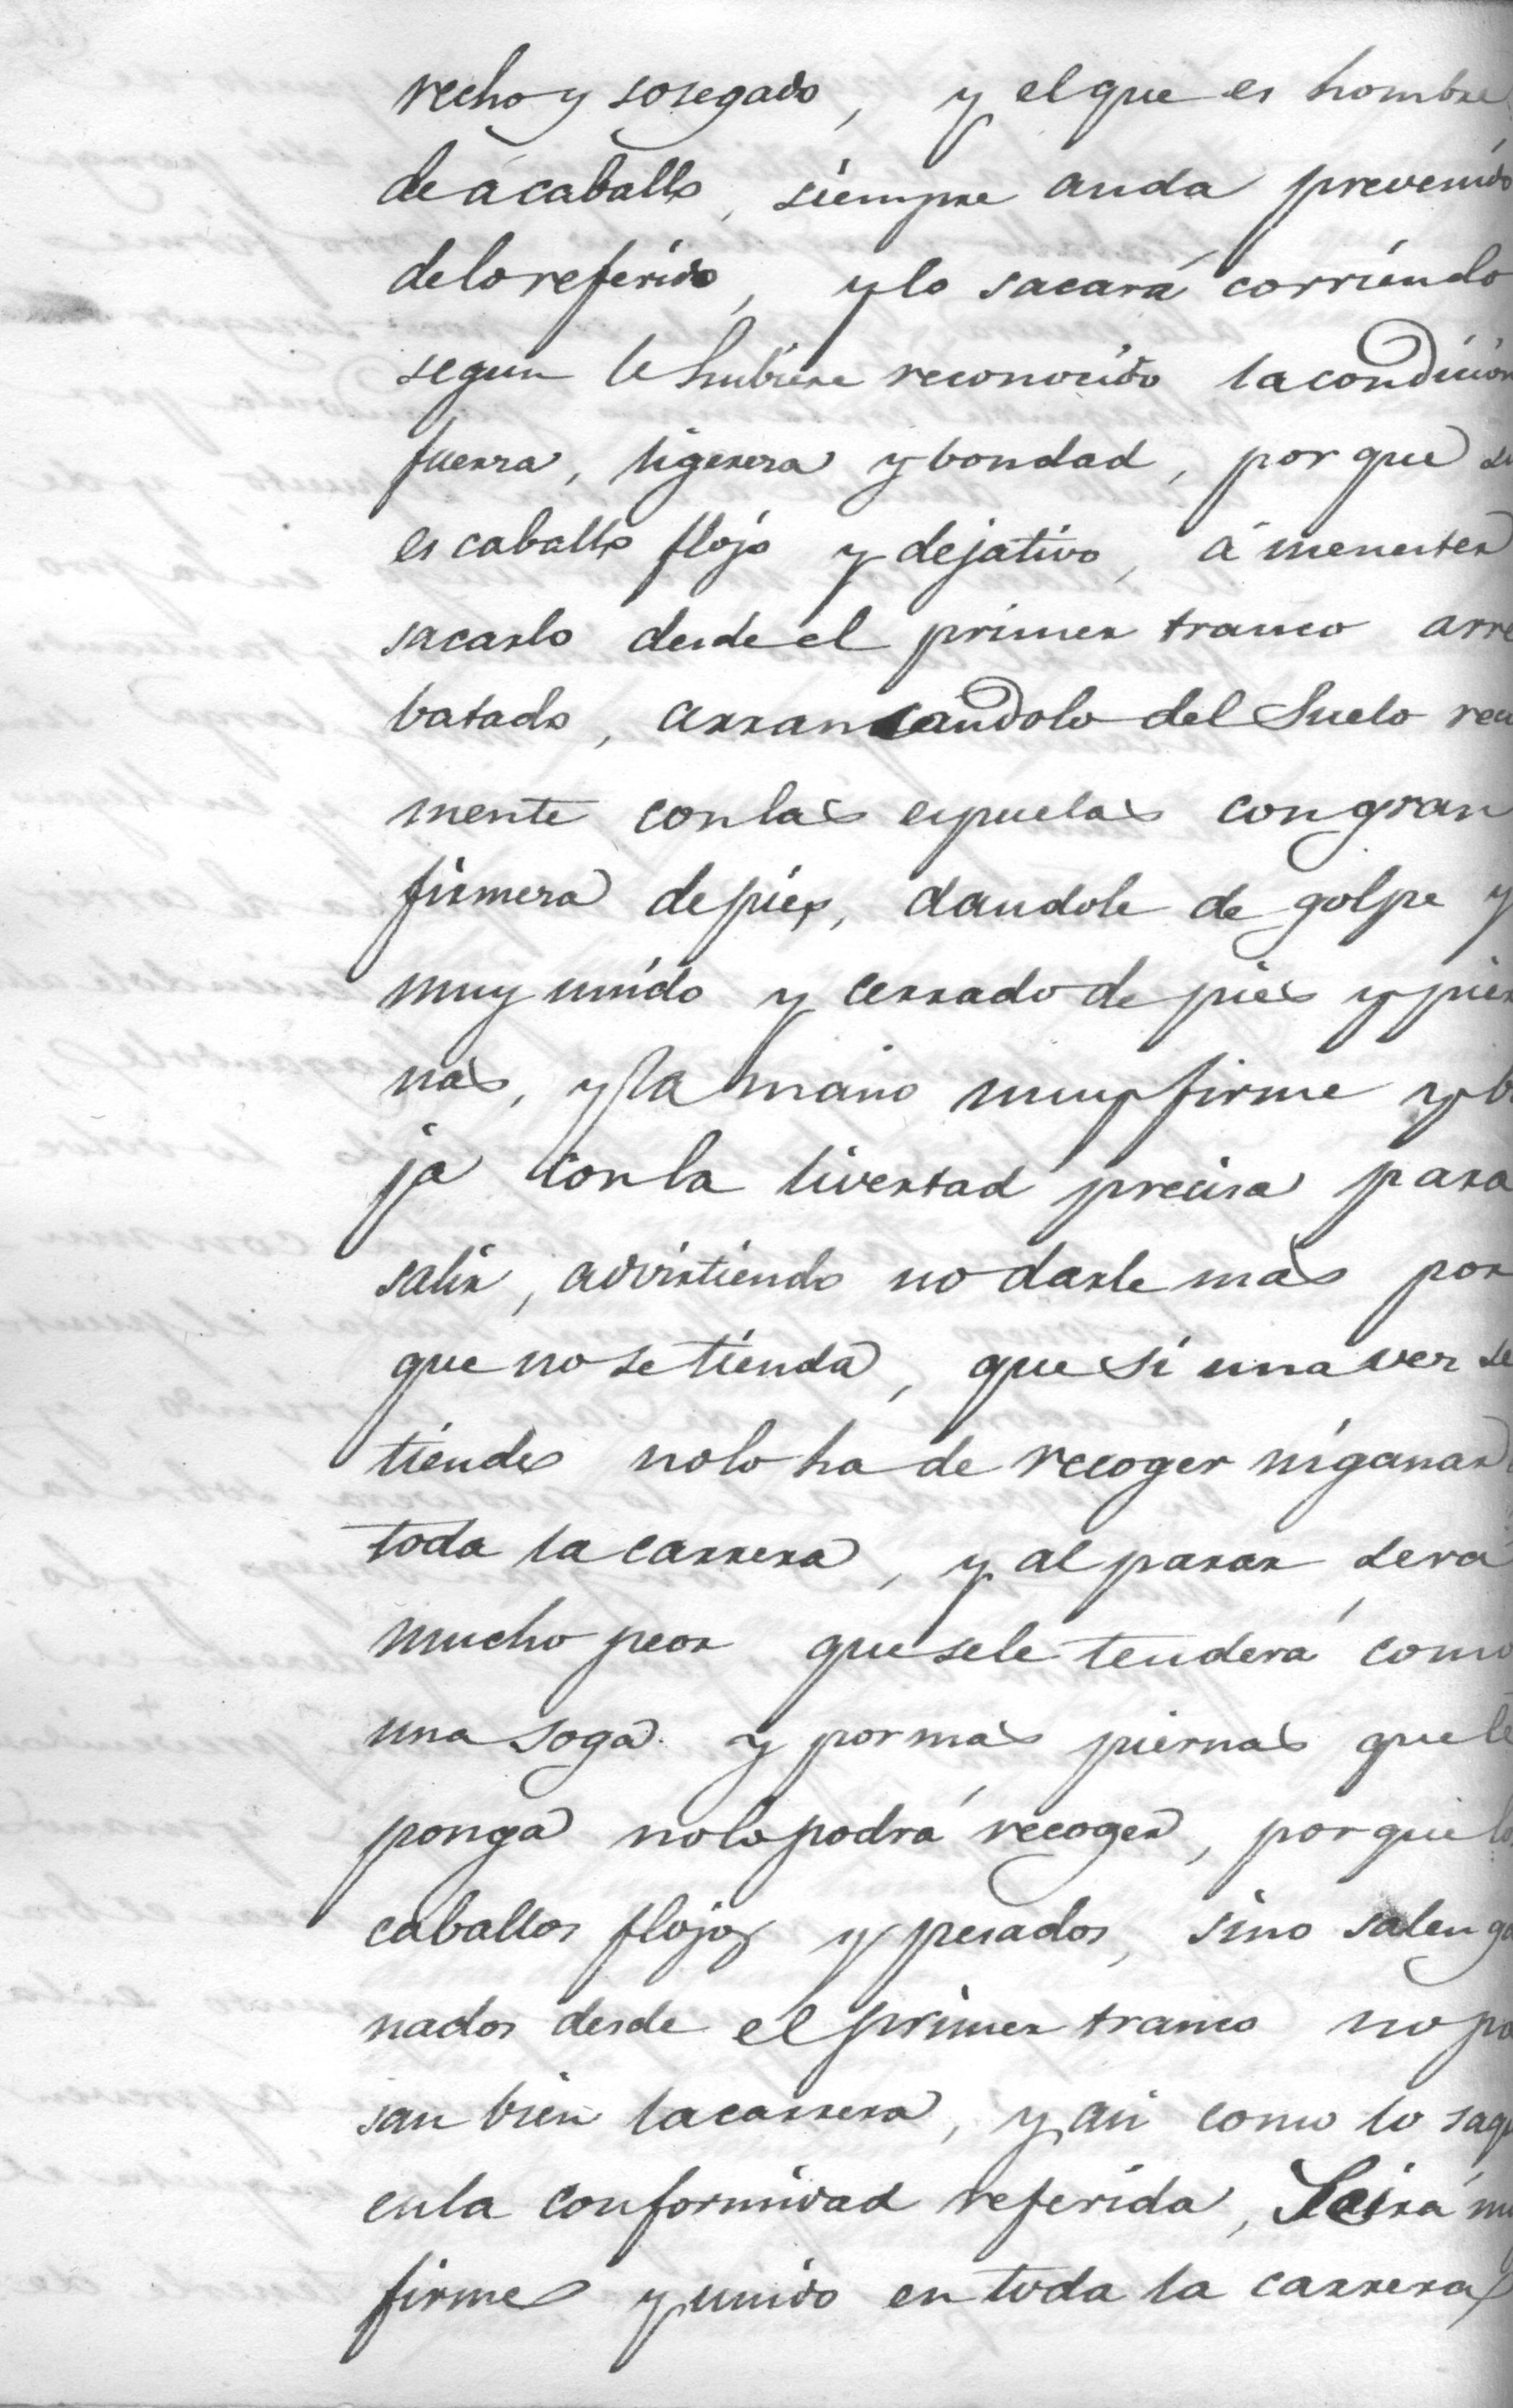 recho y sosegado, y el que es hombre
de á caballo, siempre anda prevenido
delo referido, y lo sacará corriendo
segun le hubiere reconocido la condicion
fuerza, ligereza y bondad, por que si
es caballo flojo y dejativo, á menester
sacarlo desde el primer tranco arre
batado, arrancandolo del Suelo recia
mente con las espuelas con gran
firmeza de pies, dandole de golpe y
muy unido y cerrado de pies y pier
nas, y la mano muy firme y ba
ja con la livertad precisa para
salir, advirtiendo no darle mas por
que no se tienda, que si una vez se
tiende no lo ha de recoger ni ganar
toda la carrera, y al parar, sera
mucho peor que sele tenderá como
una soga. y por mas piernas que le
ponga no lo podrá recoger, por que los
caballos flojos y pesados, sino salen ga
nados desde el primer tranco no pa
san bien la carrera, y asi como lo saque
en la conformidad referida, Se irá muy
firme y unido en toda la carrera